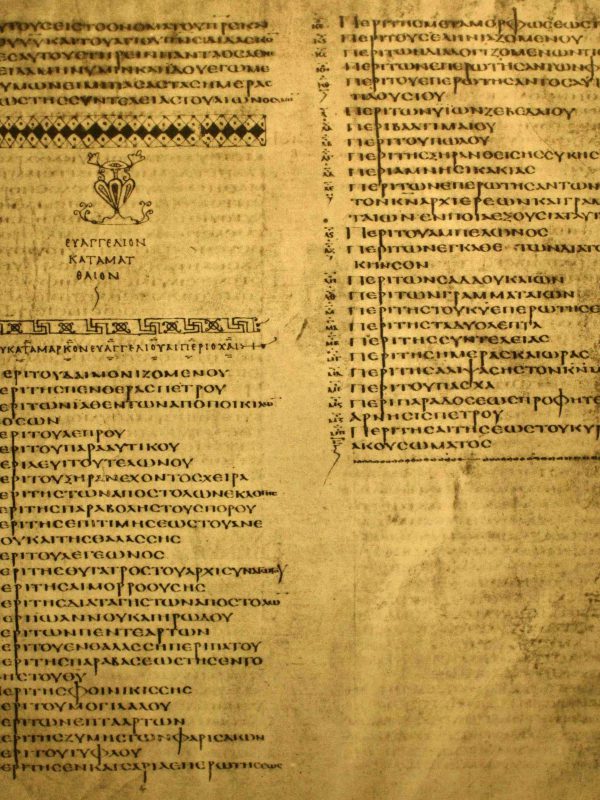 ΤΟΥΣΕΙΣΤΟΟΝΟΜΑΤΟΥΠΡΣΚΑΙ
ΤΟΥΥΥΚΑΙΤΟΥΑΓΙΟΥΠΝΣΔΙΔΑΣΚΟ
ΤΕΣΑΥΤΟΥΣΤΗΡΕΙΝΠΑΝΤΑΟΣΑΕΝΕ
ΤΕΙΛΑΜΗΝΥΜΙΝΚΑΙΙΔΟΥΕΓΩΜΕ
ΘΥΜΩΝΕΙΜΙΠΑΣΑΣΤΑΣΗΜΕΡΑΣ
ΕΩΣΤΗΣΣΥΝΤΕΛΕΙΑΣΤΟΥΑΙΩΝΟΣ
ΕΥΑΓΓΕΛΙΟΝ
ΚΑΤΑΜΑΤ
ΘΑΙΟΝ
ΤΟΥΚΑΤΑΜΑΡΚΟΝΕΥΑΓΓΕΛΙΟΥΑΙΠΕΡΙΟΧΑΙ
ΠΕΡΙΤΟΥΔΑΙΜΟΝΙΖΟΜΕΝΟΥ
ΠΕΡΙΤΗΣΠΕΝΘΕΡΑΣΠΕΤΡΟΥ
ΠΕΡΙΤΩΝΪΑΘΕΝΤΩΝΑΠΟΠΟΙΚΙΛΩ
ΝΟΣΩΝ
ΠΕΡΙΤΟΥΛΕΠΡΟΥ
ΠΕΡΙΤΟΥΠΑΡΑΛΥΤΙΚΟΥ
ΠΕΡΙΛΕΥΙΤΟΥΤΕΛΩΝΟΥ
ΠΕΡΙΤΟΥΞΗΡΑΝΕΧΟΝΤΟΣΧΕΙΡΑ
ΠΕΡΙΤΗΣΤΩΝΑΠΟΣΤΟΛΩΝΕΚΛΟΓΗΣ
ΠΕΡΙΤΗΣΠΑΡΑΒΟΛΗΣΤΟΥΣΠΟΡΟΥ
ΠΕΡΙΤΗΣΕΠΙΤΙΜΗΣΕΩΣΤΟΥΑΝΕ
ΜΟΥΚΑΙΤΗΣΘΑΛΑΣΣΗΣ
ΠΕΡΙΤΟΥΛΕΓΕΩΝΟΣ
ΠΕΡΙΤΗΣΘΥΓΑΤΡΟΣΤΟΥΑΡΧΙΣΥΝΑΓΩΓΟΥ
ΠΕΡΙΤΗΣΑΙΜΟΡΡΟΟΥΣΗΣ
ΠΕΡΙΤΗΣΔΙΑΤΑΓΗΣΤΩΝΑΠΟΣΤΟΛΩ
ΠΕΡΙΪΩΑΝΝΟΥΚΑΙΗΡΩΔΟΥ
ΠΕΡΙΤΩΝΠΕΝΤΕΑΡΤΩΝ
ΠΕΡΙΤΟΥΕΝΘΑΛΑΣΣΗΠΕΡΙΠΑΤΟΥ
ΠΕΡΙΤΗΣΠΑΡΑΒΑΣΕΩΣΤΗΣΕΝΤΟ
ΛΗΣΤΟΥΘΥ
ΠΕΡΙΤΗΣΦΟΙΝΙΚΙΣΣΗΣ
ΠΕΡΙΤΟΥΜΟΓΙΛΑΛΟΥ
ΠΕΡΙΤΩΝΕΠΤΑΑΡΤΩΝ
ΠΕΡΙΤΗΣΖΥΜΗΣΤΩΝΦΑΡΙΣΑΙΩΝ
ΠΕΡΙΤΟΥΤΥΦΛΟΥ
ΠΕΡΙΤΗΣΕΝΚΑΙΣΑΡΙΑΕΠΕΡΩΤΗΣΕΩΣ
ΠΕΡΙΤΗΣΜΕΤΑΜΟΡΦΩΣΕΩΣ
ΠΕΡΙΤΟΥΣΕΛΗΝΙΑΖΟΜΕΝΟΥ
ΠΕΡΙΤΩΝΔΙΑΛΟΓΙΖΟΜΕΝΩΝΤΙΣ
ΠΕΡΙΤΩΝΕΠΕΡΩΤΗΣΑΝΤΩΝΦ
ΠΕΡΙΤΟΥΕΠΕΡΩΤΗΣΑΝΤΟΣΑΥΤ
ΠΛΟΥΣΙΟΥ
ΠΕΡΙΤΩΝΥΙΩΝΖΕΒΕΔΑΙΟΥ
ΠΕΡΙΒΑΡΤΙΜΑΙΟΥ
ΠΕΡΙΤΟΥΠΩΛΟΥ
ΠΕΡΙΤΗΣΞΗΡΑΝΘΕΙΣΗΣΣΥΚΗΣ
ΠΕΡΙΑΜΝΗΣΙΚΑΚΙΑΣ
ΠΕΡΙΤΩΝΕΠΕΡΩΤΗΣΑΝΤΩΝ
ΤΟΝΚΝΑΡΧΙΕΡΕΩΝΚΑΙΓΡΑΜ
ΤΑΙΩΝΕΝΠΟΙΑΕΞΟΥΣΙΑ
ΠΕΡΙΤΟΥΑΜΠΕΛΩΝΟΣ
ΠΕΡΙΤΩΝΕΓΚΑΘΕΤΩΝΔΙΑΤΟ
ΚΗΝΣΟΝ
ΠΕΡΙΤΩΝΣΑΔΔΟΥΚΑΙΩΝ
ΠΕΡΙΤΩΝΓΡΑΜΜΑΤΑΙΩΝ
ΠΕΡΙΤΗΣΤΟΥΚΥΕΠΕΡΩΤΗΣΕ
ΠΕΡΙΤΗΣΤΑΔΥΟΛΕΠΤΑ
ΠΕΡΙΤΗΣΣΥΝΤΕΛΕΙΑΣ
ΠΕΡΙΤΗΣΗΜΕΡΑΣΚΑΙΩΡΑΣ
ΠΕΡΙΤΗΣΑΛΙΨΑΣΗΣΤΟΝΚΝΜ
ΠΕΡΙΤΟΥΠΑΣΧΑ
ΠΕΡΙΠΑΡΑΔΟΣΕΩΣΠΡΟΦΗΤΕ
ΑΡΝΗΣΙΣΠΕΤΡΟΥ
ΠΕΡΙΤΗΣΑΙΤΗΣΕΩΣΤΟΥΚΥΡ
ΑΚΟΥΣΩΜΑΤΟΣ